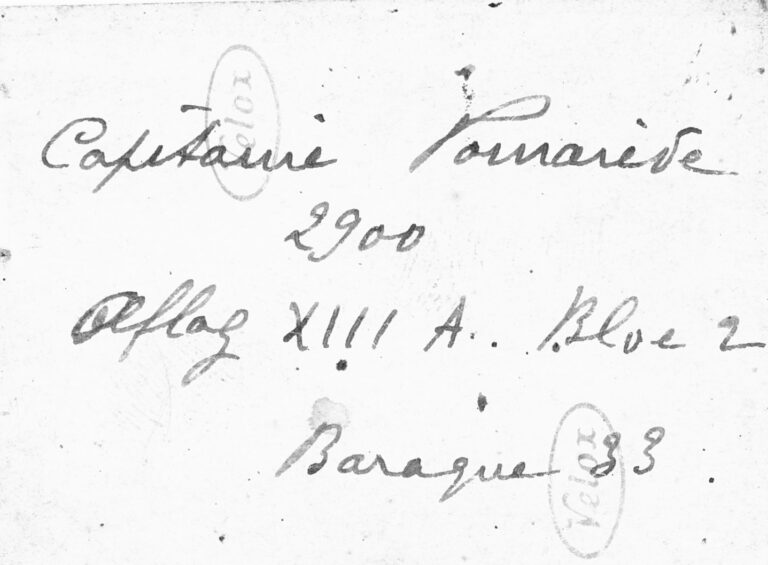 Velox
Capitaine Pomarède
2900
Oflag XIII A. Bloc 2
Baraque 33.
Velox